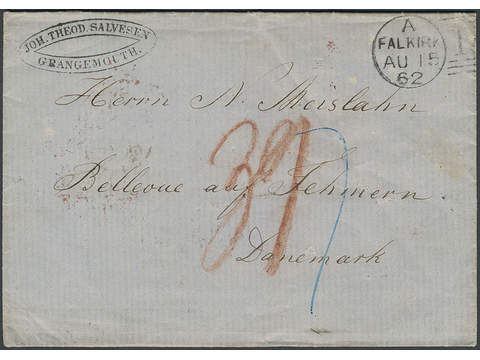 JOH. THEOD. SALVESEN
GRANGEMOUTH.
A
FALKIRK
AU 15
62
Herrn N. Meislahn
Bellevue auf Fehmern.
Danemark